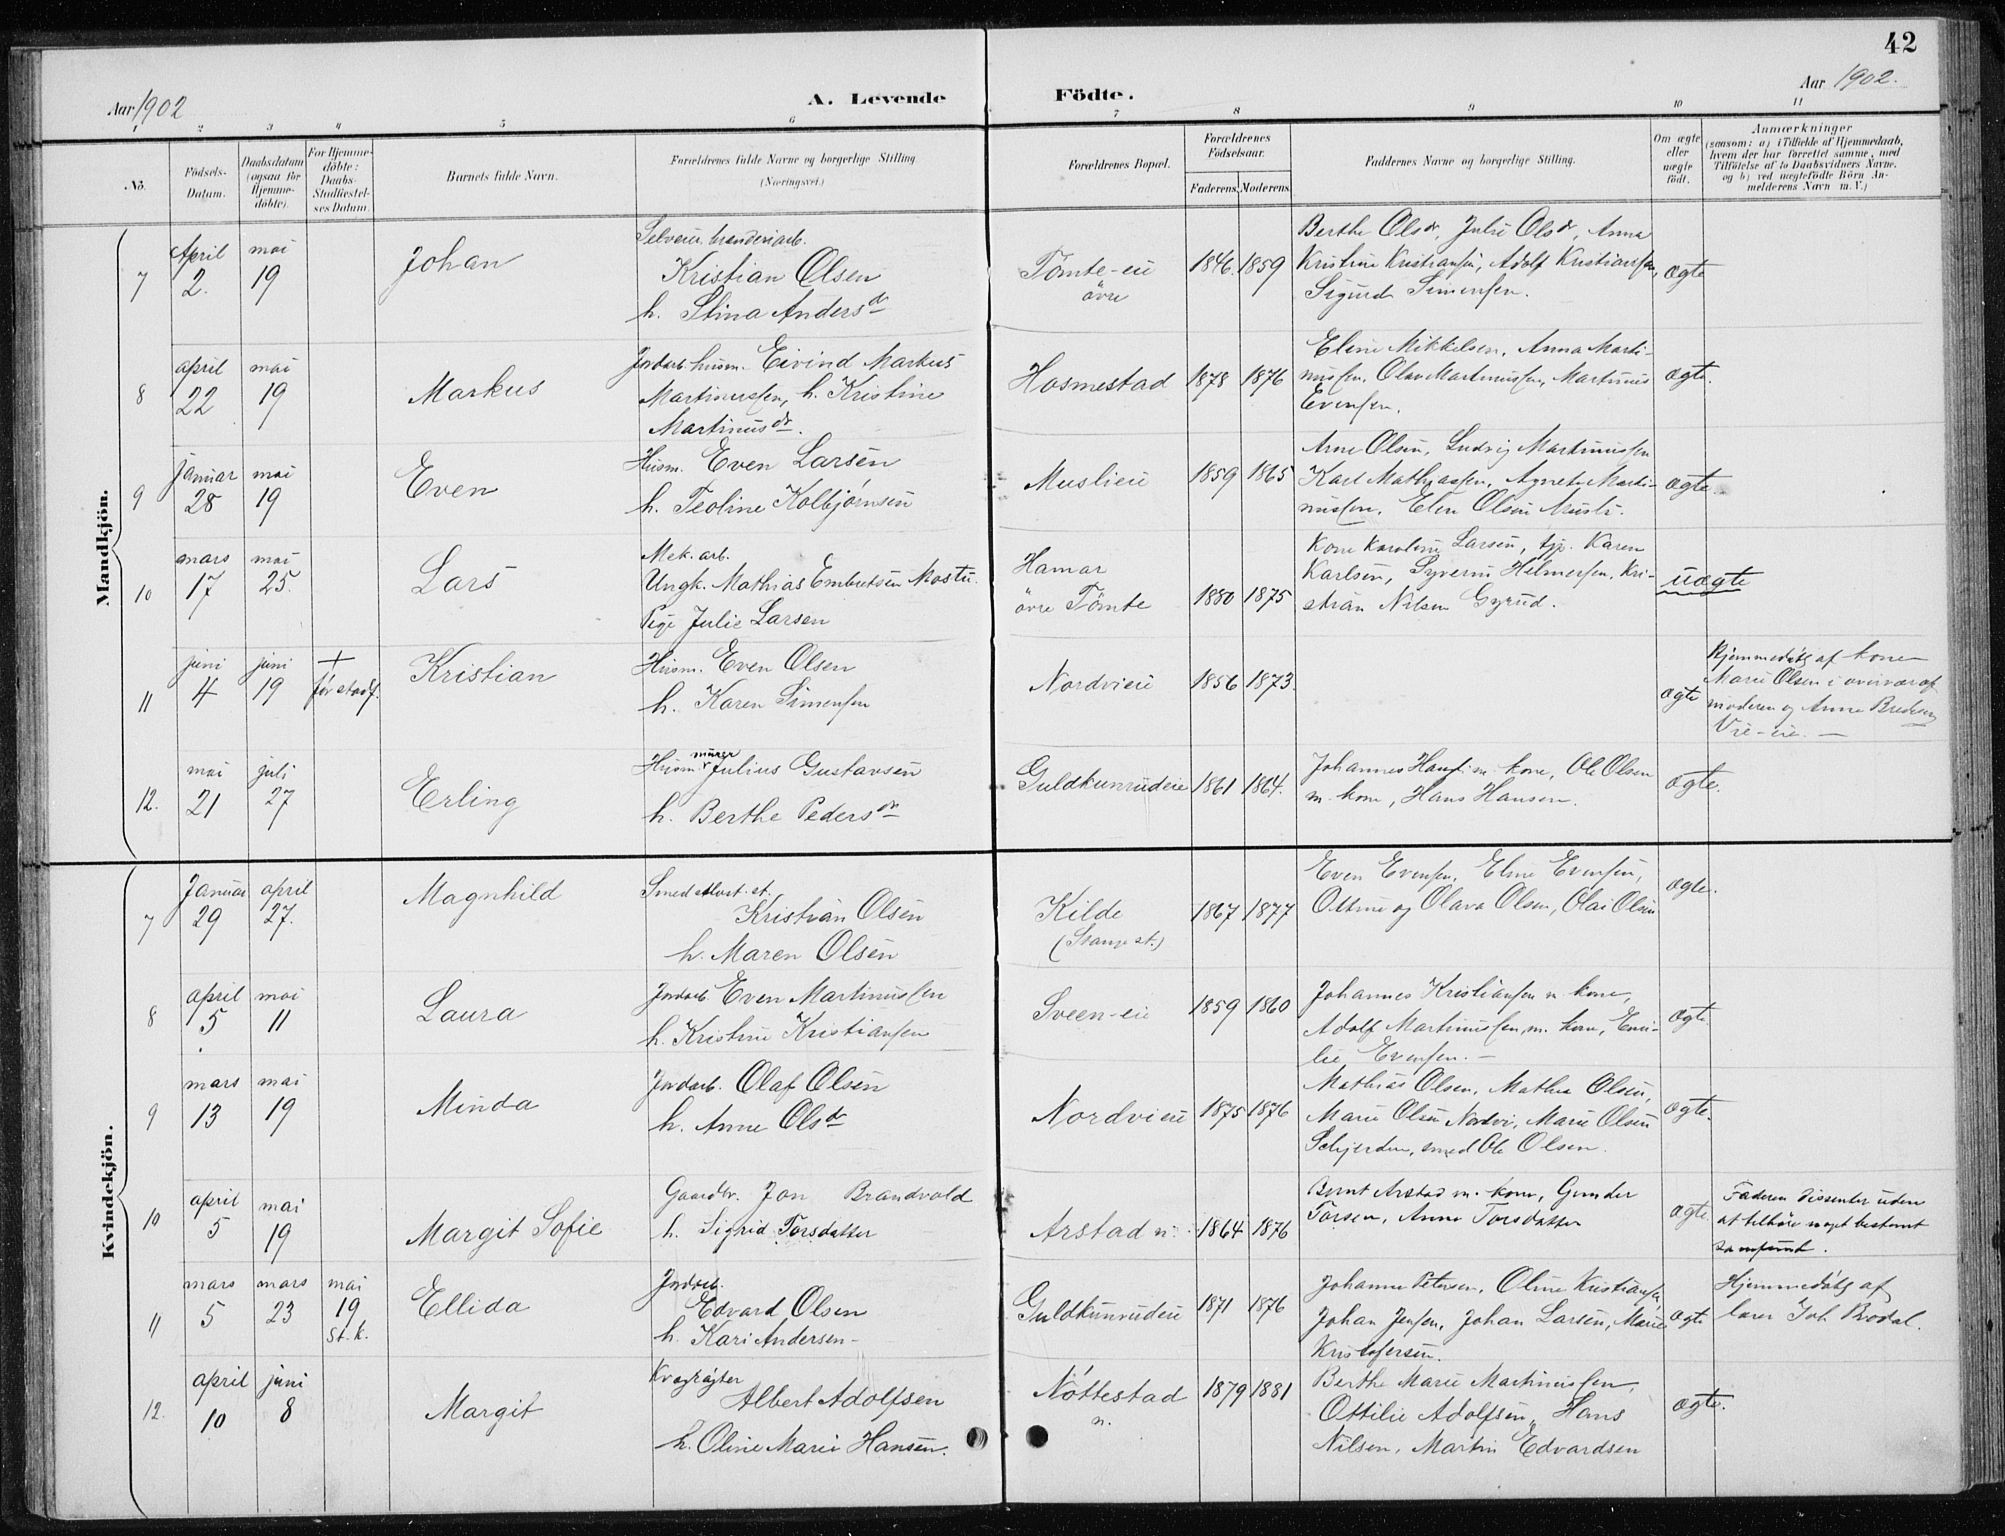 42
Aar 1902
A. Levende Födte.
Aar 1902.
1 2 3 4 5 6 7 8 9 10 11
No.
Födsels-
Datum.
Daabsdatum
(ogsaa for
Hjemme-
döbte).
For Hjemme-
döbte:
Daabs-
Stadfæstel-
ses Datum.
Barnets fulde Navn.
Forældrenes fulde Navne og borgerlige Stilling
(Næringsvei.)
Forældrenes Bopæl.
Forældrenes
Födselsaar.
Faderens. Moderens.
Faddernes Navne og borgerlige Stilling.
Om ægte
eller
uægte
født.
Anmærkninger
(saasom: a) i Tilfælde af Hjemmedaab,
hvem der har forrettet samme, med
Tilföielse af to Daabsvidners Navne.
og b) ved uægtefödte Börn An-
melderens Navn m. V.)
Mandkjön.
7
April 2.
mai 19
Johan
Selveier brænderiarb.
Kristian Olsen
h. Stina Andersdr
Tömte-eie
övre
1846. 1859
Berthe Olsdr, Julie Olsdr, Anna
Kristine Kristiansen, Adolf Kristiansen,
Sigurd Simensen.
ægte
8
april 22
mai 19
Markus
Jordarb. husm. Eivind Markus
Martinussen, h. Kristine
Martinusdr.
Hosmestad
1878 1876
Eline Mikkelsen, Anna Marti-
nussen, Olav Martinussen, Martinus
Evensen.
ægte.
9
januar 28
mai 19
Even
Husm. Even Larsen
h. Teoline Kolbjørnsen
Muslieie
1859 1865
Arne Olsen, Ludvig Martinussen
Karl Mathiassen, Agnete Marti-
nussen, Elen Olsen Musli.
ægte.
10
mars 17
mai 25.
Lars
Mek. arb.
Ungk. Mathias Embretsen Mostu.
Pige Julie Larsen
Hamar
övre Tömte
1880 1875
Kone Karoline Larsen, tjp. Karen
Karlsen, Syverin Hilmersen, Kri-
stian Nilsen Gyrud.
uægte
11
juni 4
juni 19
+
før stadf.
Kristian
Husm. Even Olsen
h. Karen Simensen
Nordvieie
1856 1873.
ægte
Hjemmedøbt af kone
Marie Olsen i overvær af
moderen og Anne Bredesen
Vie-eie. —
12.
mai 21
juli 27
Erling
Husm. murer Julius Gustavsen
h. Berthe Pedersdr
Guldkunrudeie
1861 1864.
Johannes Hans. m. kone, Ole Olsen
m. kone, Hans Hansen.
ægte.
Kvindekjön.
7
Januar 29
april 27.
Magnhild
Smed
Kristian Olsen
h. Maren Olsen
Kilde
(Stange st.)
1867 1877
Even Evensen, Eline Evensen,
Ottine og Olava Olsen, Olai Olsen
ægte.
8
april 5
mai 11
Laura
Jordarb. Even Martinussen
h. Kristine Kristiansen
Sveen-eie
1859 1860
Johannes Kristiansen m. kone,
Adolf Martinussen m. kone, Emi-
lie Evensen. —
ægte.
9
mars 13
mai 19
Minda
Jordarb. Olaf Olsen
h. Anne Olsdr
Nordvieie
1875 1876
Mathias Olsen, Mathea Olsen,
Marie Olsen Nordvi, Marie Olsen
Schjerden, smed Ole Olsen.
ægte.
10
april 5
mai 19
Margit Sofie
Gaardbr. Jon Brandvold
h. Sigrid Torsdatter
Arstad n.
1864 1876
Bernt Arstad m. kone, Gunder
Torsen, Anne Torsdatter
ægte.
Faderen dissenter uden
at tilhøre noget bestemt
samfund.
11
mars 5
mars 23
mai 19
st. k.
Ellida
Jordarb.
Edvard Olsen
h. Kari Andersen
Guldkunrudeie
1871 1876
Johanne Petersen, Oline Kristiansen,
Johan Jensen, Johan Larsen, Marie
Kristofersen.
ægte
Hjemmedøbt af
lærer Joh. Brodal.
12.
april 10
juni 8
Margit
Kvægrøgter
Albert Adolfsen
h. Oline Marie Hansen.
Nøttestad
n.
1879 1881
Berthe Marie Martinussen,
Ottilie Adolfsen, Hans
Nilsen, Martin Edvardsen
ægte.